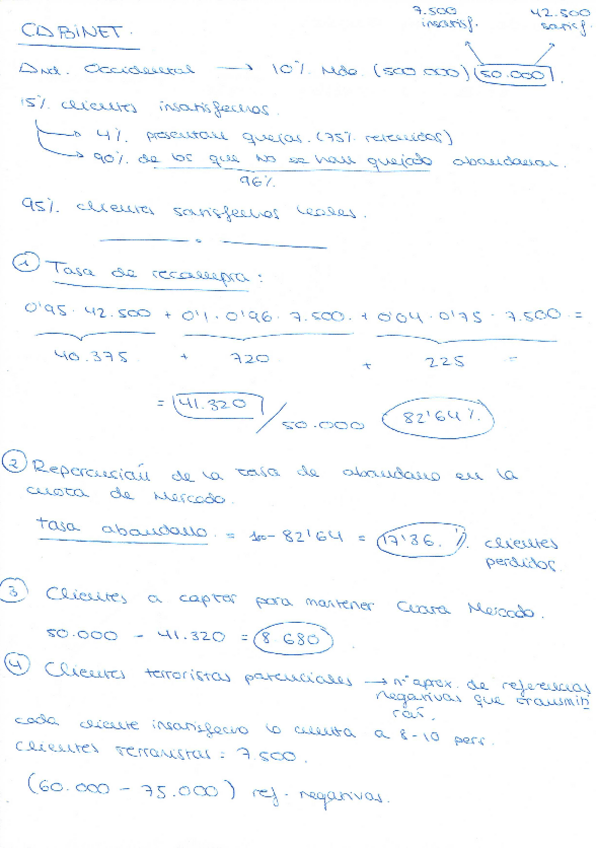 7.500 42.500
insatisf. satisf.
CABINET.
And. Occidental → 10% Mdo (500.000) (50.000).
15% clientes insatisfechos.
→ 4% presentan quejas. (75% retenidos)
→ 90% de los que no se han quejado abandonan.
96%
95% clientes satisfechos leales.
1 Tasa de recompra:
0'95 · 42.500 + 0'1 · 0'96 · 7.500 + 0'04 · 0'75 · 7.500 =
40.375 + 720 + 225 =
= 41.320 / 50.000 82'64%
2 Repercusión de la tasa de abandono en la
cuota de Mercado.
tasa abandono = 82'64 = 17'36 % clientes
perdidos.
3 Clientes a captar para mantener Cuota Mercado.
50.000 - 41.320 = 8 680
4 Clientes terroristas potenciales → nº aprox. de referencias
negativas que transmiti
rán.
cada cliente insatisfecho lo cuenta a 8-10 pers.
clientes terroristas: 7.500
(60.000 - 75.000) ref. negativas.